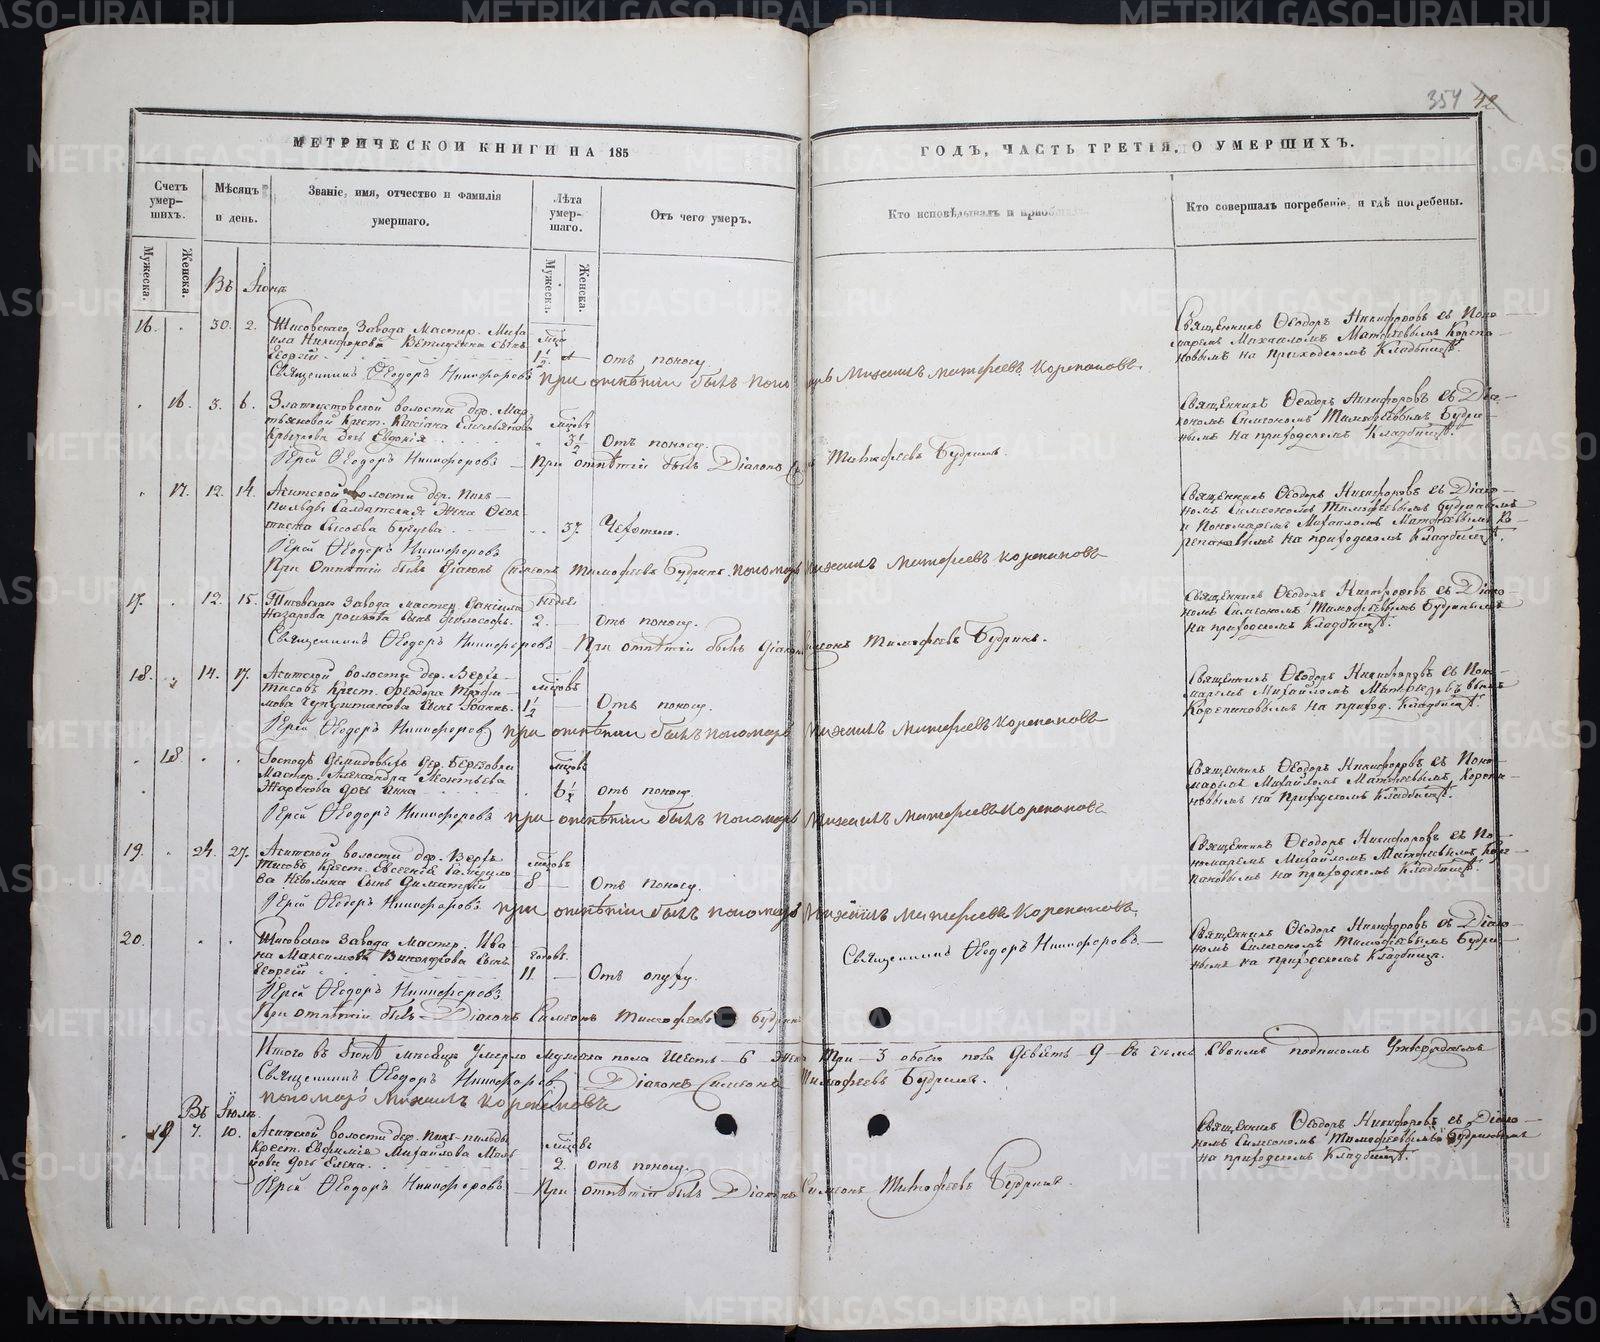 354 42
МЕТРИЧЕСКОЙ КНИГИ НА 185
ГОДЪ, ЧАСТЬ ТРЕТІЯ, О УМЕРШИХЪ.
Счетъ умер-шихъ.
Мѣсяцъ и день.
Званіе, имя, отчество и фамилія умершаго.
Лѣта умер-шаго.
Отъ чего умеръ.
Кто исповѣдывалъ и пріобщалъ.
Кто совершалъ погребеніе, и гдѣ погребены.
Мужеска.
Женска.
Мужеска.
Женска.
Въ Іюнѣ
16. 30. 2. Завода Мастер. Миха-
ила Никифорова сынъ
Георгій 1 1/2 отъ поносу.
Священникъ Ѳеодоръ Никифоровъ при отпѣтіи былъ Пономарь Михаилъ Матѳеевъ Корепановъ.
Священникъ Ѳеодоръ Никифоровъ съ Поно-
маремъ Михаиломъ Матѳеевымъ Корепа-
новымъ на приходскомъ Кладбищѣ.
16. 3. 6. Златоустовской волости дер. Мар-
Крест. Кассіана Емельянова
дочь Евдокія мѣсцовъ 3 1/2 Отъ поносу.
Іерей Ѳеодоръ Никифоровъ При отпѣтіи былъ Діаконъ Тимоѳеевъ Будринъ.
Священникъ Ѳеодоръ Никифоровъ съ Діа-
кономъ Симеономъ Тимоѳеевымъ Будри-
нымъ на приходскомъ Кладбищѣ.
17. 12. 14. Ачитской волости дер.
Солдатская Жена
Сысоева 37. Чехоткою.
Іерей Ѳеодоръ Никифоровъ
При отпѣтіи былъ Діаконъ Симеонъ Тимоѳеевъ Будринъ. пономарь Михаилъ Матѳеевъ Корепановъ
Священникъ Ѳеодоръ Никифоровъ съ Діако-
номъ Симеономъ Тимоѳеевымъ Будринымъ
и Пономаремъ Михаиломъ Матѳеевымъ Ко-
репановымъ на приходскомъ Кладбищѣ.
17. 12. 15. Завода мастер. Даніила
Назарова сынъ Философъ. недѣль 2. Отъ поносу.
Священникъ Ѳеодоръ Никифоровъ При отпѣтіи былъ Діаконъ Симеонъ Тимоѳеевъ Будринъ.
Священникъ Ѳеодоръ Никифоровъ съ Діако-
номъ Симеономъ Тимоѳеевымъ Будринымъ
на приходскомъ Кладбищѣ.
18. 14. 17. Ачитской волости дер. Верхъ-
Тисовъ Крест. Ѳеодора Трофи-
мова сынъ Іоаннъ. мѣсцовъ 1 1/2 Отъ поносу.
Іерей Ѳеодоръ Никифоровъ при отпѣтіи былъ пономарь Михаилъ Матѳеевъ Корепановъ
Священникъ Ѳеодоръ Никифоровъ съ Поно-
маремъ Михаиломъ Матѳеевымъ
Корепановымъ на приход. Кладбищѣ.
18. Господъ Демидовыхъ дер. Березовки
Мастер. Александра Леонтьева
дочь Анна мѣсцовъ 6 1/2 отъ поносу.
Іерей Ѳеодоръ Никифоровъ при отпѣтіи былъ пономарь Михаилъ Матѳеевъ Корепановъ
Священникъ Ѳеодоръ Никифоровъ съ Поно-
маремъ Михаиломъ Матѳеевымъ Корепа-
новымъ на Приходскомъ Кладбищѣ.
19. 24. 27. Ачитской волости дер. Верхъ
Тисовъ Крест. Евсевія Гаврило-
ва Неволина Сынъ Димитрій мѣсцовъ 8 Отъ поносу.
Іерей Ѳеодоръ Никифоровъ при отпѣтіи былъ пономарь Михаилъ Матѳеевъ Корепановъ.
Священникъ Ѳеодоръ Никифоровъ съ По-
номаремъ Михаиломъ Матѳеевымъ Коре-
пановымъ на приходскомъ Кладбищѣ.
20. Завода Мастер. Ива-
на Максимова Винокурова Сынъ
Георгій годовъ. 11. Отъ
Священникъ Ѳеодоръ Никифоровъ.
Іерей Ѳеодоръ Никифоровъ
При отпѣтіи былъ Діаконъ Симеонъ Тимоѳеевъ Будринъ
Священникъ Ѳеодоръ Никифоровъ съ Діако-
номъ Симеономъ Тимоѳеевымъ Будри-
нымъ на приходскомъ Кладбищѣ.
Итого въ Іюнѣ мѣсяцѣ Умерло Мужеска пола Шесть 6 Женска Три 3 обоего пола Девять 9 въ чемъ Своимъ подписомъ Утверждаемъ
Священникъ Ѳеодоръ Никифоровъ Діаконъ Симеонъ Тимоѳеевъ Будринъ.
пономарь Михаилъ Корепановъ
Въ Іюлѣ.
19 7. 10. Ачитской волости дер.
Крест. Евфимія Михайлова
дочь Елена. мѣсцовъ 2 отъ поносу.
Іерей Ѳеодоръ Никифоровъ При отпѣтіи былъ Діаконъ Симеонъ Тимоѳеевъ Будринъ.
Священникъ Ѳеодоръ Никифоровъ съ Діако-
номъ Симеономъ Тимоѳеевымъ Будринымъ
на приходскомъ Кладбищѣ.
METRIKI.GASO-URAL.RU